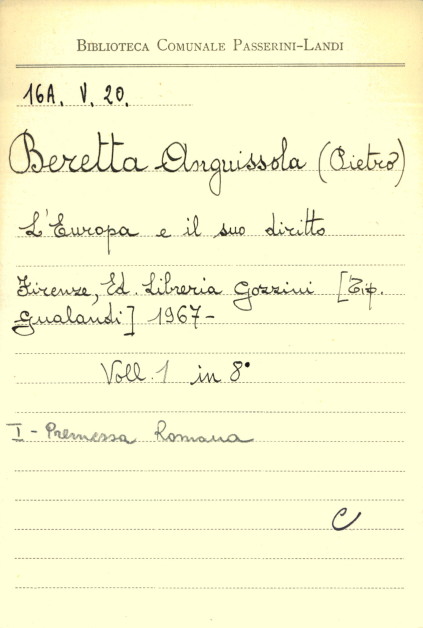 BIBLIOTECA COMUNALE PASSERINI-LANDI
16A. V. 20.
Beretta Anguissola (Pietro)
L'Europa e il suo diritto
Firenze, Ed. Libreria Gozzini [Tip.
Gualandi] 1967-
Voll. 1 in 8°
I - Premessa Romana
C